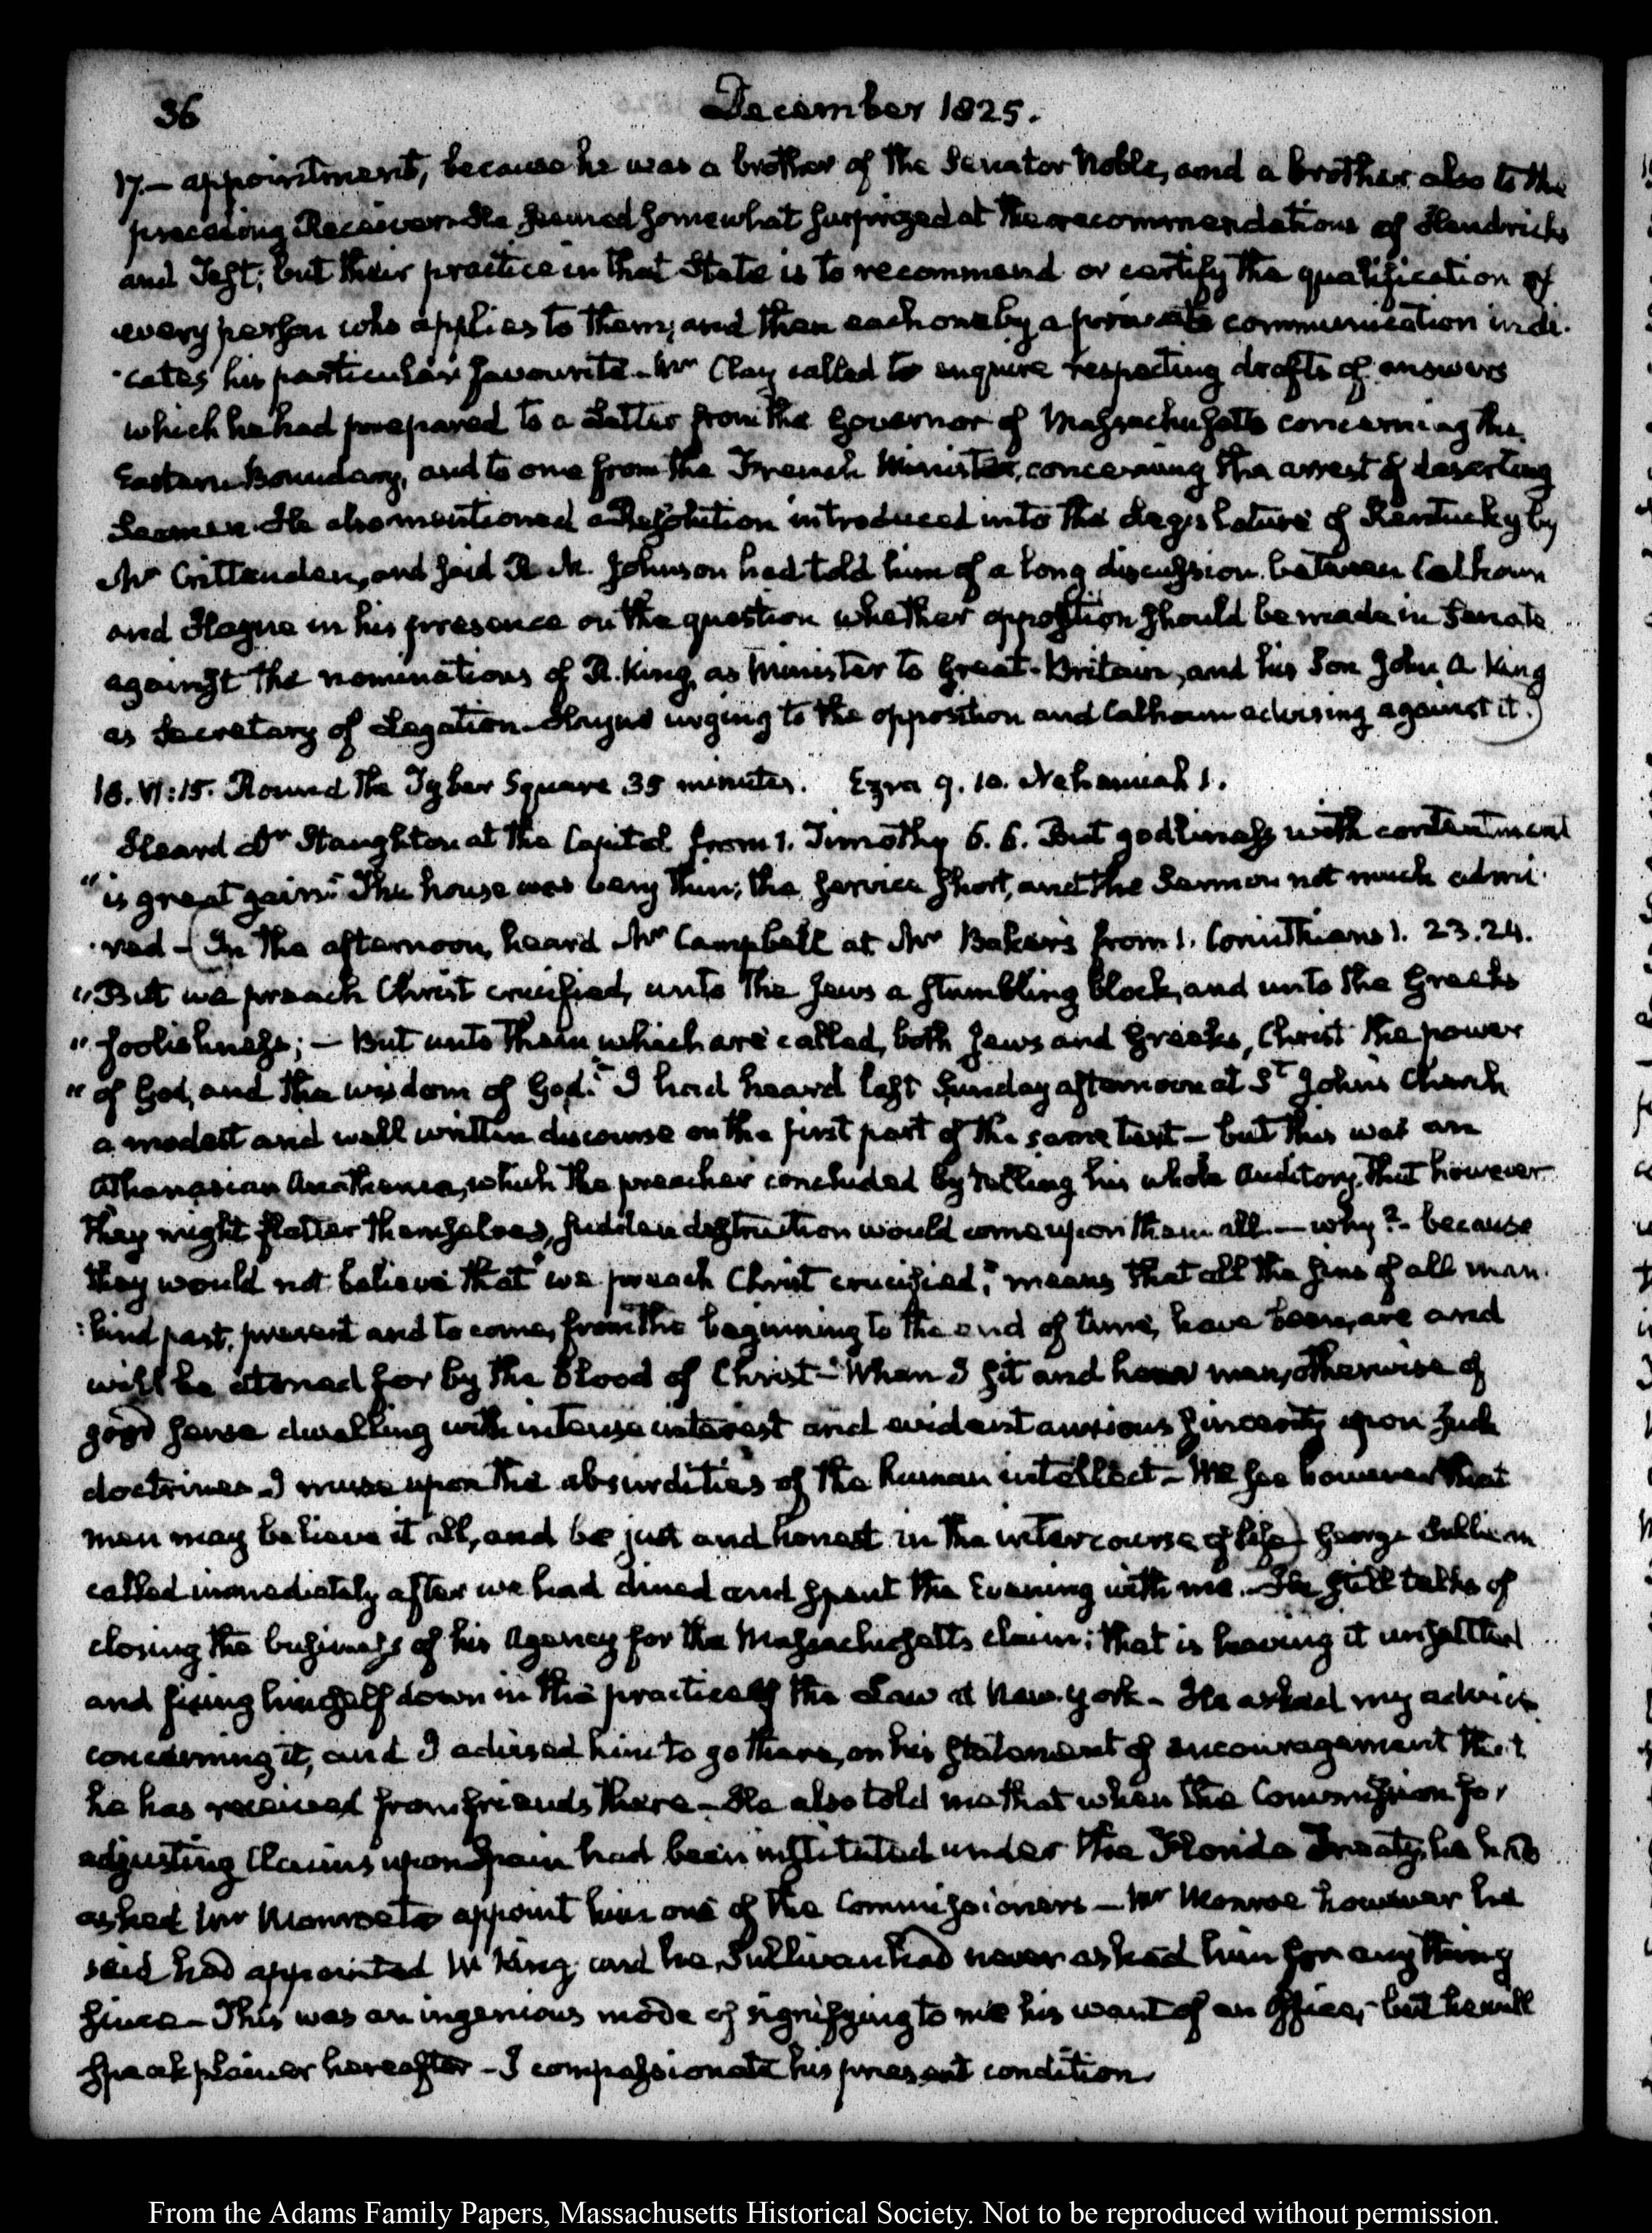 36
December 1825.
17.— appointment, because he was a brother of the Senator Noble, and a brother also to the
preceding Receiver. He seemed somewhat surprized at the recommendations of Hendricks
and Test; but their practice in that State is to recommend or certify the qualification of
every person who applies to them; and then each one by a private communication indi-
-cates his particular favourite. Mr Clay called to enquire respecting drafts of answers
which he had prepared to a Letter from the Governor of Massachusetts concerning the
Eastern Boundary, and to one from the French Minister, concerning the arrest of deserting
Seamen. He also mentioned a Resolution introduced into the Legislature of Kentucky by
Mr Crittenden, and said R. M. Johnson had told him of a long discussion between Calhoun
and Hayne in his presence on the question whether opposition should be made in Senate
against the nominations of R. King, as Minister to Great-Britain, and his Son John A King
as Secretary of Legation. Hayne urging to the opposition and Calhoun advising against it.)
18. VI:15. Round the Tyber Square 35 minutes. Ezra 9. 10. Nehemiah 1.
Heard Dr Staughton at the Capitol from 1. Timothy 6. 6. But godliness with contentment
"is great gain." The house was very thin; the service short, and the Sermon not much admi-
-red — (In the afternoon, heard Mr Campbell at Mr Baker's from 1. Corinthians 1. 23.24.
"But we preach Christ crucified, unto the Jews a stumbling block, and unto the Greeks
"foolishness; — But unto them which are called, both Jews and Greeks, Christ the power
"of God, and the wisdom of God." I had heard last Sunday afternoon at St John's Church
a modest and well written discourse on the first part of the same text — but this was an
Athanasian Anathema, which the preacher concluded by telling his whole auditory, that however
they might flatter themselves, sudden destruction would come upon them all — why? — because
they would not believe that "we preach Christ crucified," means that all the sins of all man-
:kind past, present and to come, from the beginning to the end of time, have been, are and
will be atoned for by the blood of Christ — When I sit and hear men, otherwise of
good sense dwelling with intense interest and evident anxious sincerity upon such
doctrines I muse upon the absurdities of the human intellect — We see however that
men may believe it all, and be just and honest in the intercourse of life) George Sullivan
called immediately after we had dined and spent the Evening with me. He still talks of
closing the business of his Agency for the Massachusetts claim; that is leaving it unsettled
and fixing himself down in the practice of the Law at New-York — He asked my advice
concerning it, and I advised him to go there, on his statement of encouragement that
he has received from friends there — He also told me that when the Commission for
adjusting Claims upon Spain had been instituted under the Florida Treaty, he had
asked Mr Monroe to appoint him one of the Commissioners — Mr Monroe however he
said had appointed W King, and he, Sullivan had never asked him for any thing
since — This was an ingenious mode of signifying to me his want of an Office, but he will
speak plainer hereafter — I compassionate his present condition.
From the Adams Family Papers, Massachusetts Historical Society. Not to be reproduced without permission.